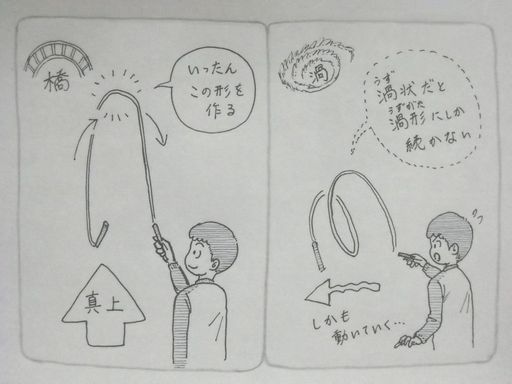 橋
いったん
この形を
作る
真上
渦
うず
渦状だと
うずがた
渦形にしか
続かない
しかも
動いていく…